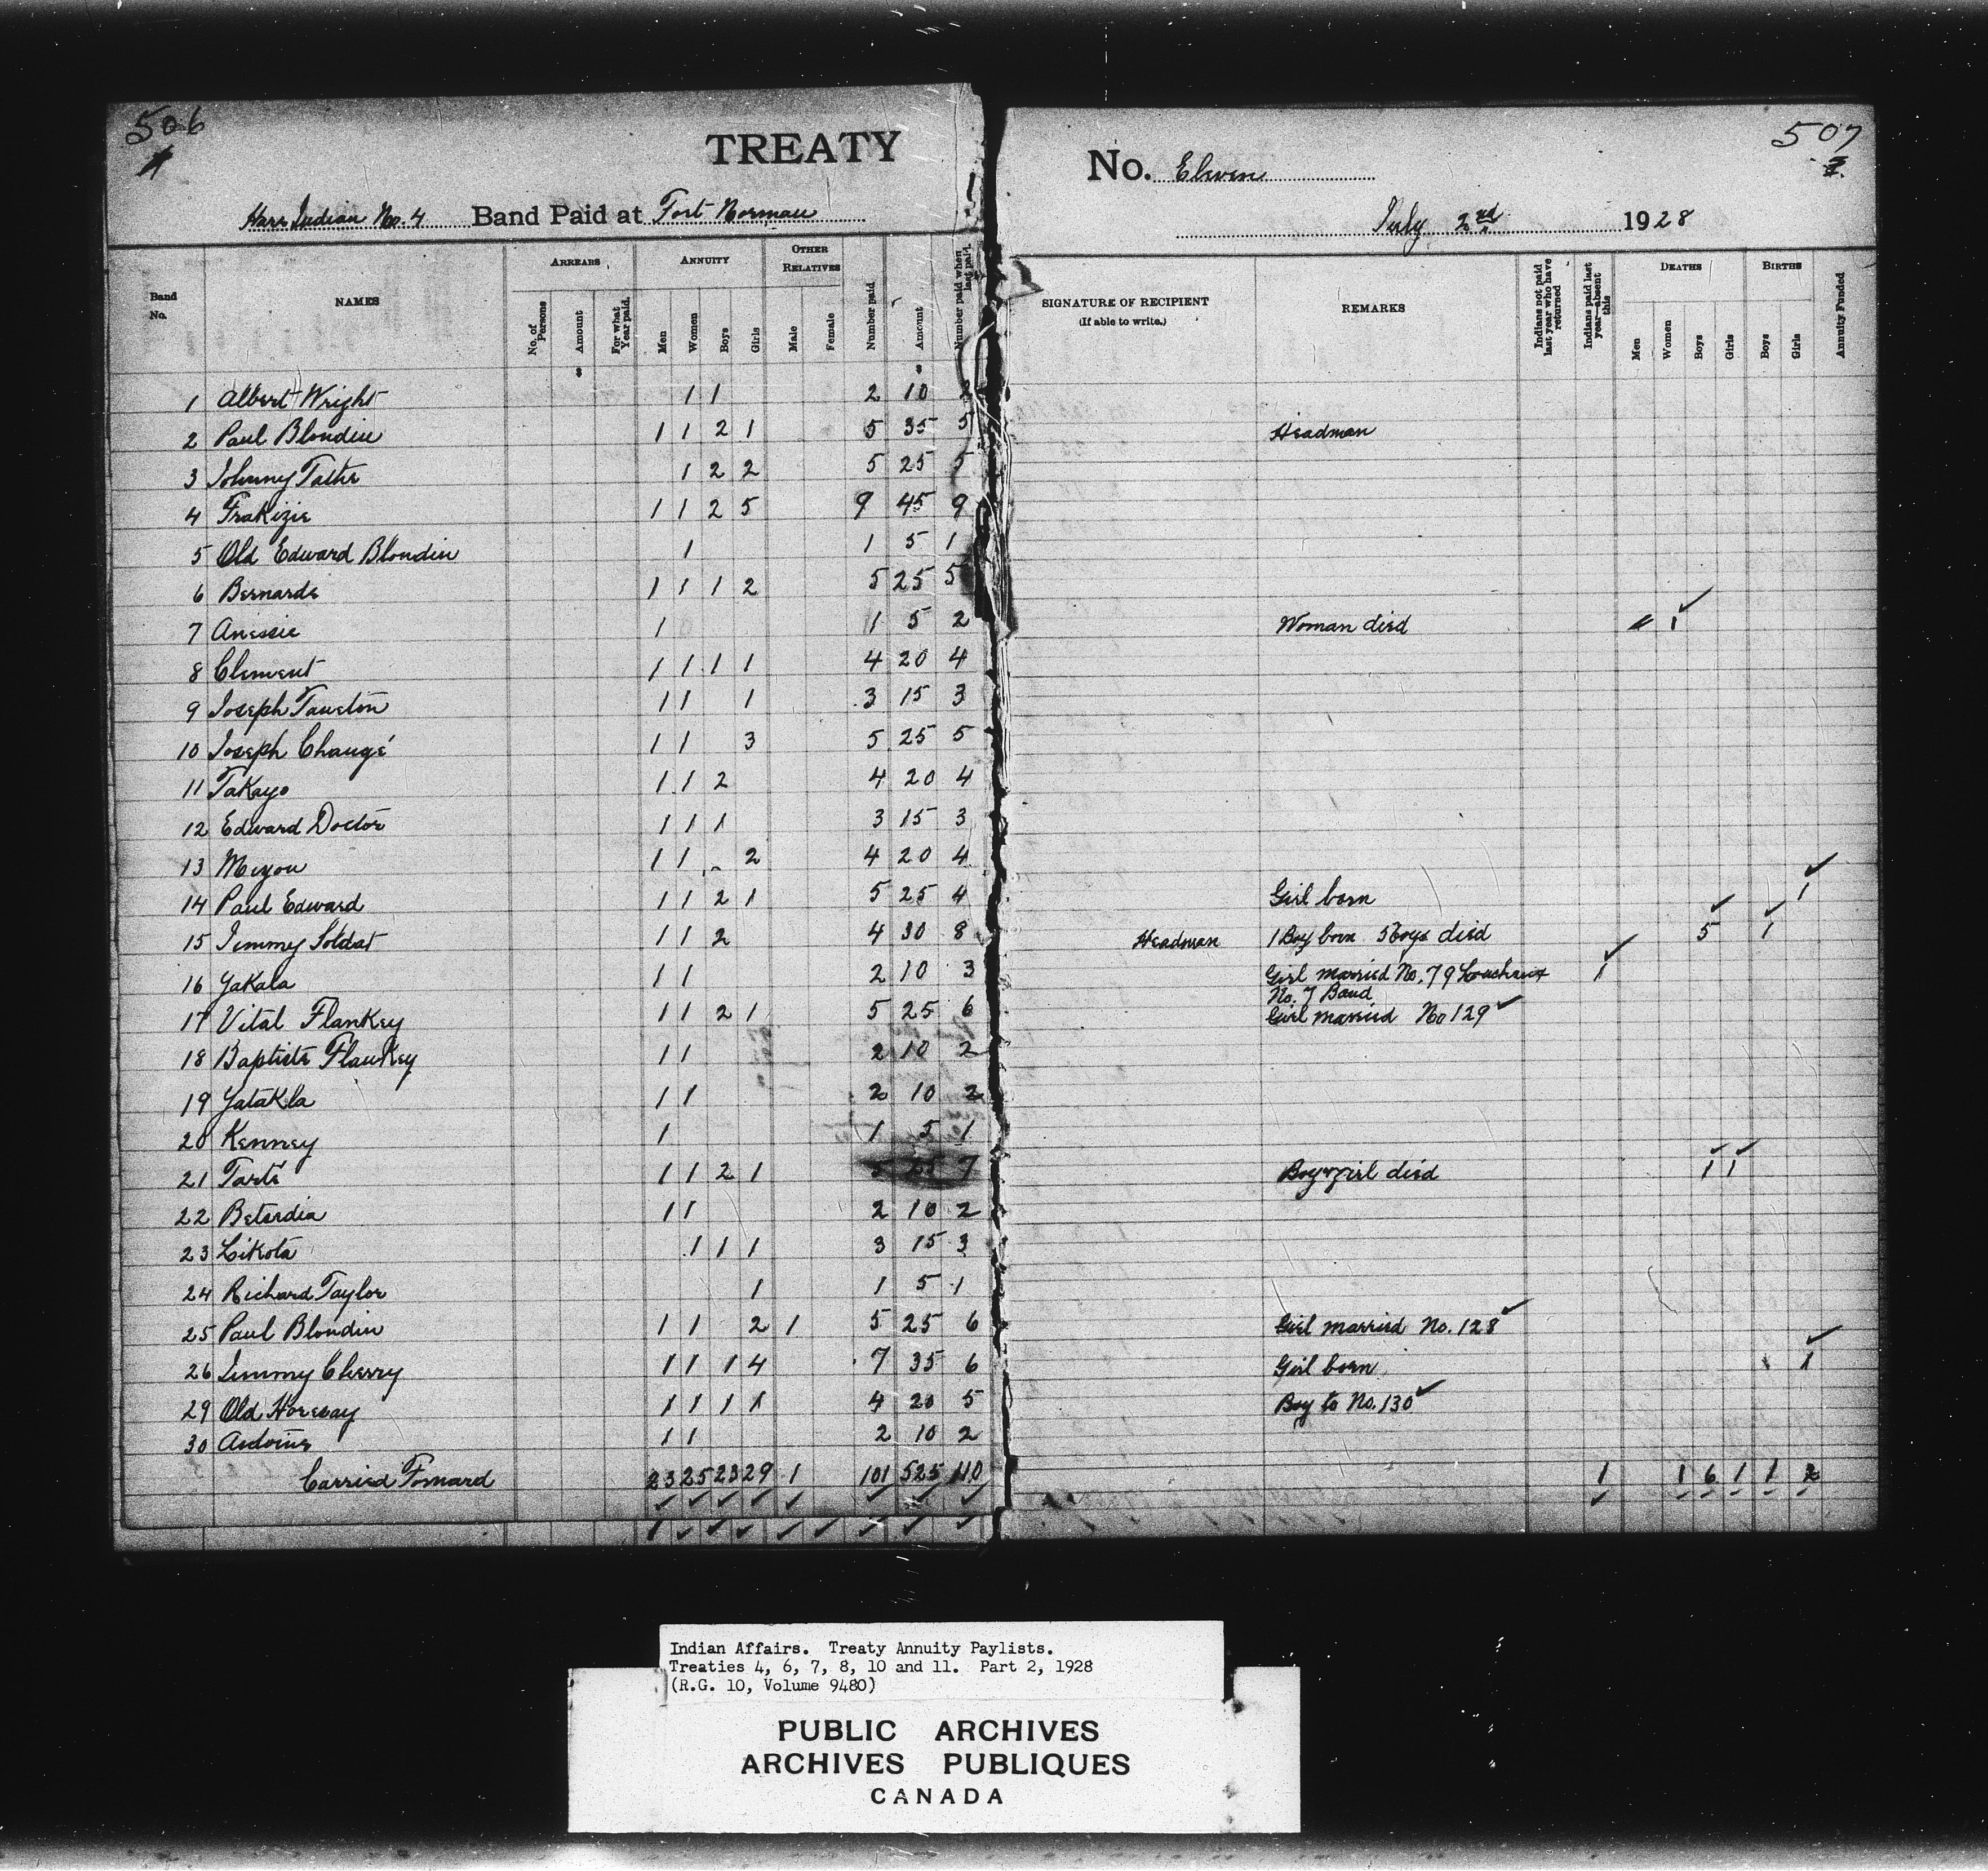 506
507
TREATY No. Eleven
Hare Indian No. 4 Band Paid at Fort Norman July 2nd 1928
Band No. NAMES ARREARS ANNUITY OTHER RELATIVES Number paid Amount Number paid when last paid SIGNATURE OF RECIPIENT (If able to write.) REMARKS Indians not paid last year who have returned Indians paid last year—absent this DEATHS BIRTHS Annuity Funded
No. of Persons Amount For what Year paid. Men Women Boys Girls Male Female Men Women Boys Girls Boys Girls
$ $
1 Albert Wright 1 1 2 10 2
2 Paul Blondin 1 1 2 1 5 35 5 Headman
3 Johnny Tathe 1 2 2 5 25 5
4 Trakizie 1 1 2 5 9 45 9
5 Old Edward Blondin 1 1 5 1
6 Bernarde 1 1 1 2 5 25 5
7 Anessie 1 1 5 2 Woman died 1
8 Clement 1 1 1 1 4 20 4
9 Joseph Taueton 1 1 1 3 15 3
10 Joseph Chaugé 1 1 3 5 25 5
11 Takayo 1 1 2 4 20 4
12 Edward Doctor 1 1 1 3 15 3
13 Meyou 1 1 2 4 20 4
14 Paul Edward 1 1 2 1 5 25 4 Girl born 1
15 Jimmy Soldat 1 1 2 4 30 8 Headman 1 Boy born 5 Boys died 5 1
16 Yakala 1 1 2 10 3 Girl married No. 79 Loucheux No. 7 Band 1
17 Vital Flankey 1 1 2 1 5 25 6 Girl married No 129
18 Baptiste Flankey 1 1 2 10 2
19 Yatakla 1 1 2 10 2
20 Kenney 1 1 5 1
21 Tarte 1 1 2 1 5 25 7 Boy & girl died 1 1
22 Betsedia 1 1 2 10 2
23 Likota 1 1 1 3 15 3
24 Richard Taylor 1 1 5 1
25 Paul Blondin 1 1 2 1 5 25 6 Girl married No. 128
26 Jimmy Cherry 1 1 1 4 7 35 6 Girl born 1
29 Old Horesay 1 1 1 1 4 20 5 Boy to No. 130
30 Antoine 1 1 2 10 2
Carried Forward 23 25 23 29 1 101 525 110 1 1 6 1 1 2
Indian Affairs. Treaty Annuity Paylists.
Treaties 4, 6, 7, 8, 10 and 11. Part 2, 1928
(R.G. 10, Volume 9480)
PUBLIC ARCHIVES
ARCHIVES PUBLIQUES
CANADA